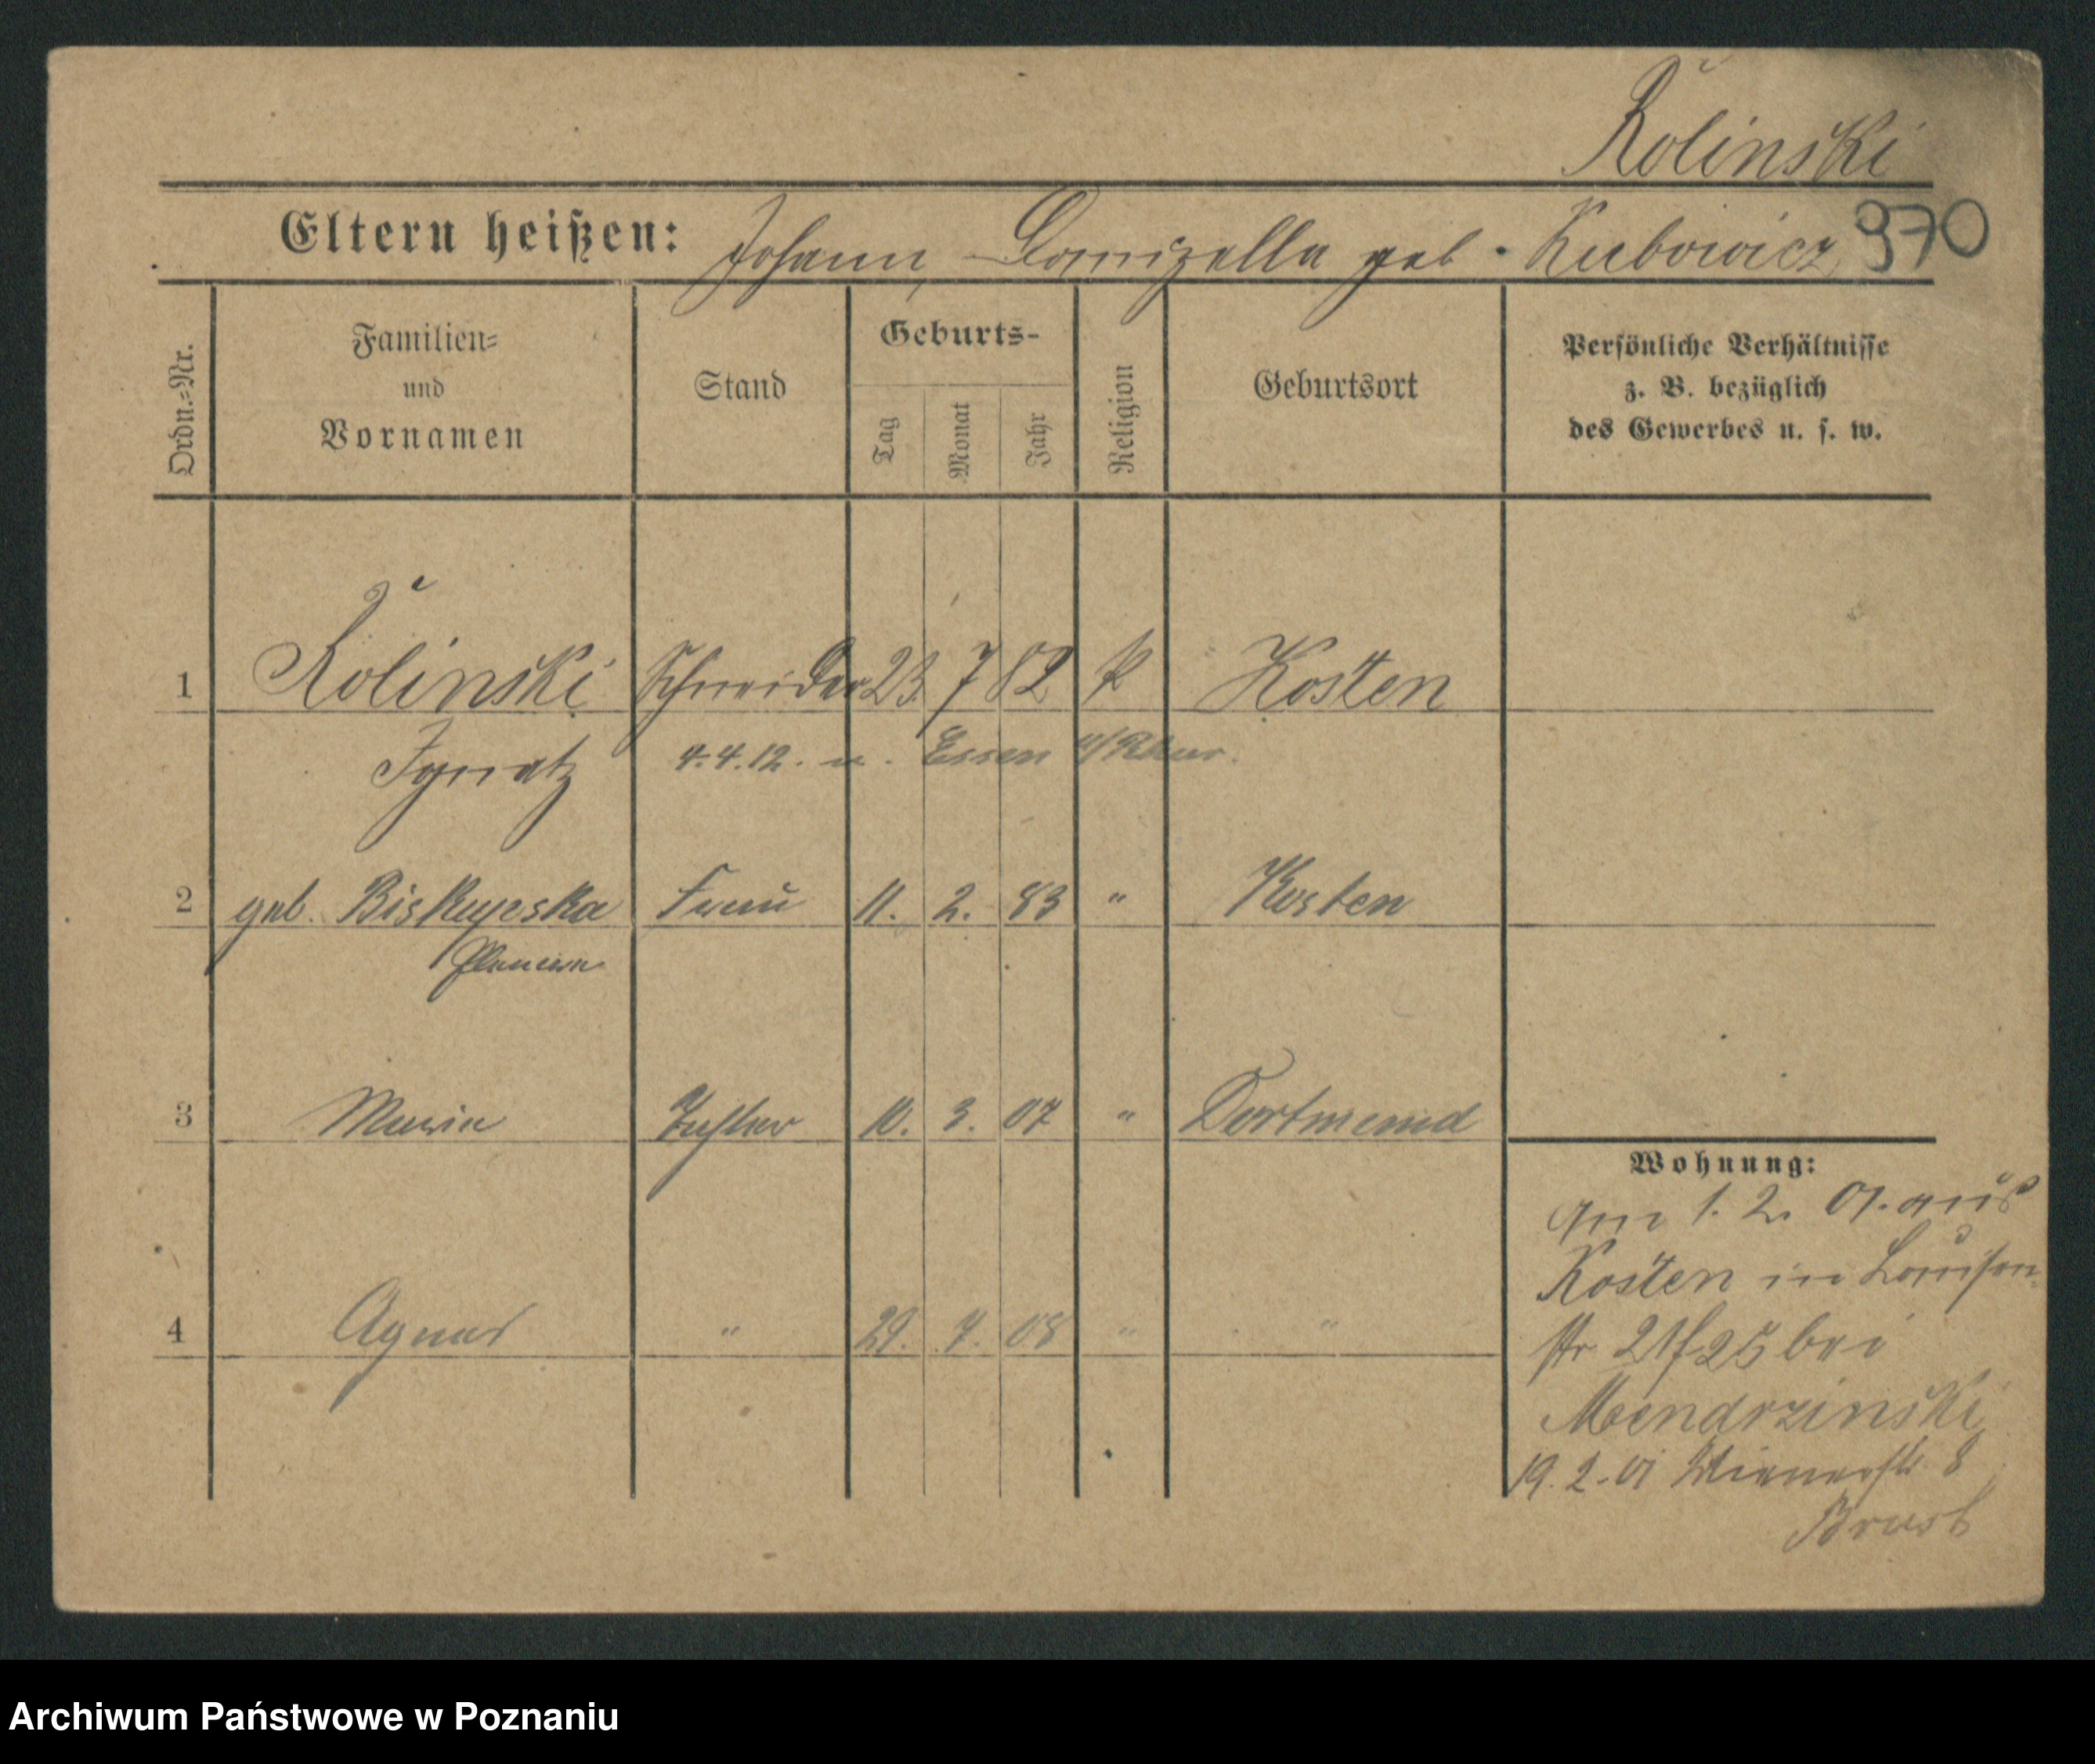 Kolinski
Eltern heißen: Johann, geb. Kubowicz 970
Ordn.=Nr.
Familien=
und
Vornamen
Stand
Geburts-
Tag
Monat
Jahr
Religion
Geburtsort
Persönliche Verhältnisse
z. B. bezüglich
des Gewerbes u. s. w.
1 Kolinski Schneider 23. 7 82 k Kosten
Ignatz 4.4.12. n. Essen a/Ruhr.
2 geb. Frau 11. 2. 83 " Kosten
3 Maria Tochter 10. 3. 07 " Dortmund
4 Agnes " 29. 7. 08 " "
Wohnung:
Am 1. 2. 01. aus
Kosten in Louisen-
str 21/25 bei
Mendrzinski
19. 2. 01 Wienerstr 8
Archiwum Państwowe w Poznaniu